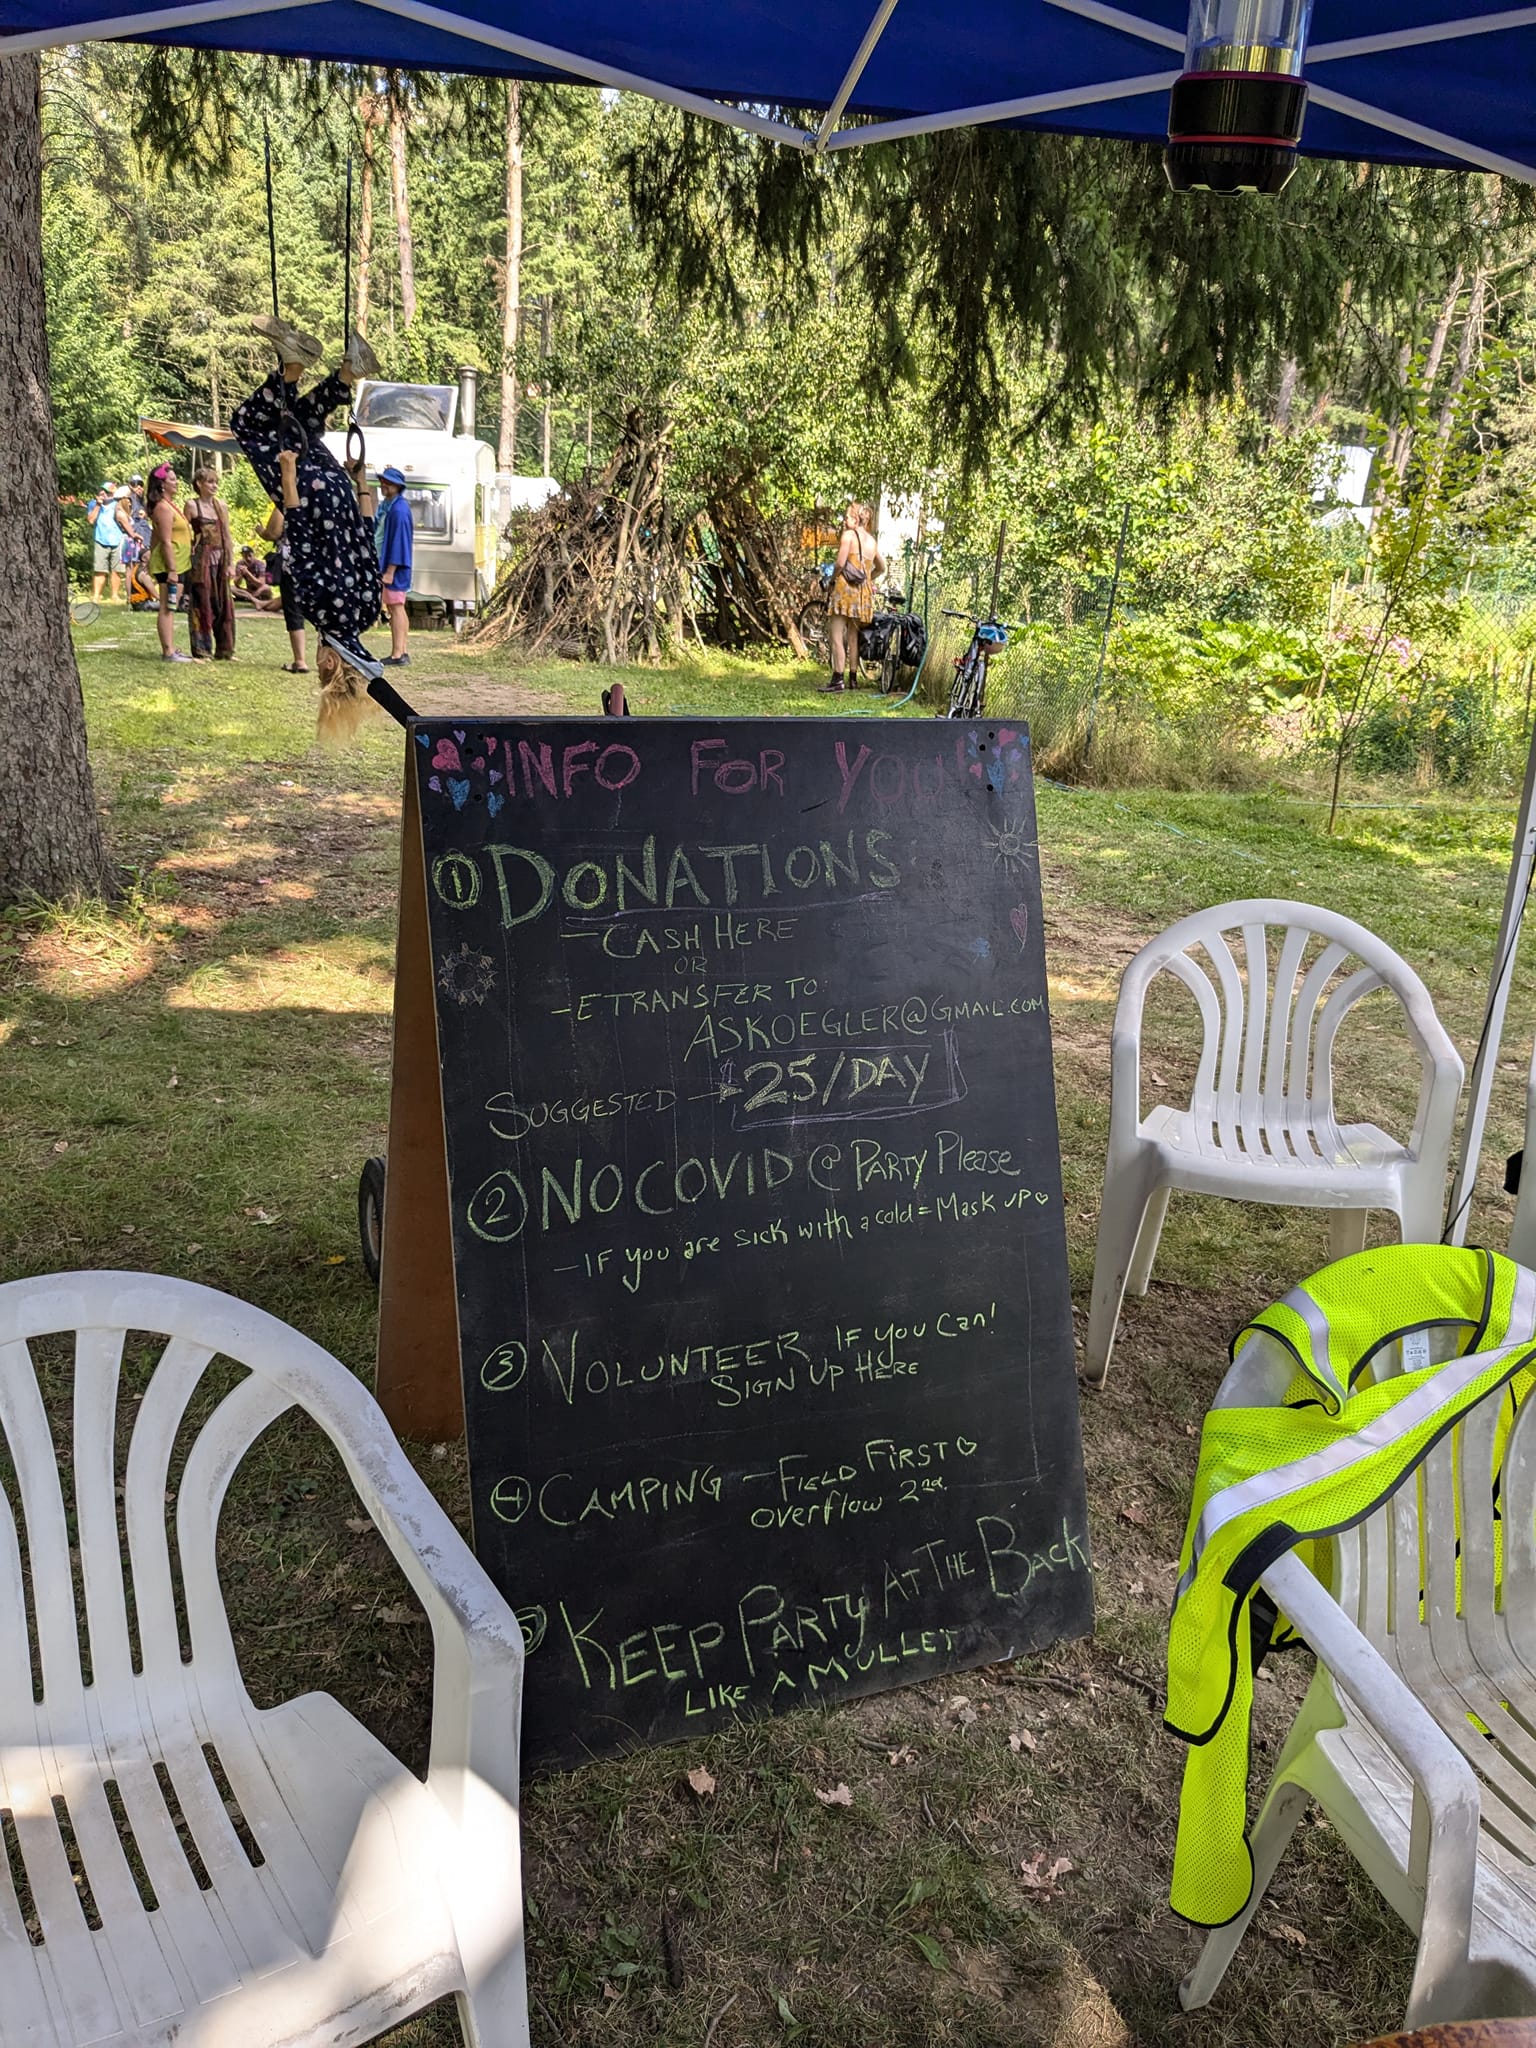 INFO FOR YOU!
① DONATIONS
- CASH HERE
OR
- ETRANSFER TO:
ASKOEGLER@GMAIL.COM
SUGGESTED → $25/DAY
② NO COVID @ PARTY Please
- IF you are sick with a cold = Mask up ♡
③ VOLUNTEER IF you can!
SIGN UP HERE
④ CAMPING - FIELD FIRST ♡
overflow 2nd
KEEP PARTY AT THE BACK
LIKE A MULLET